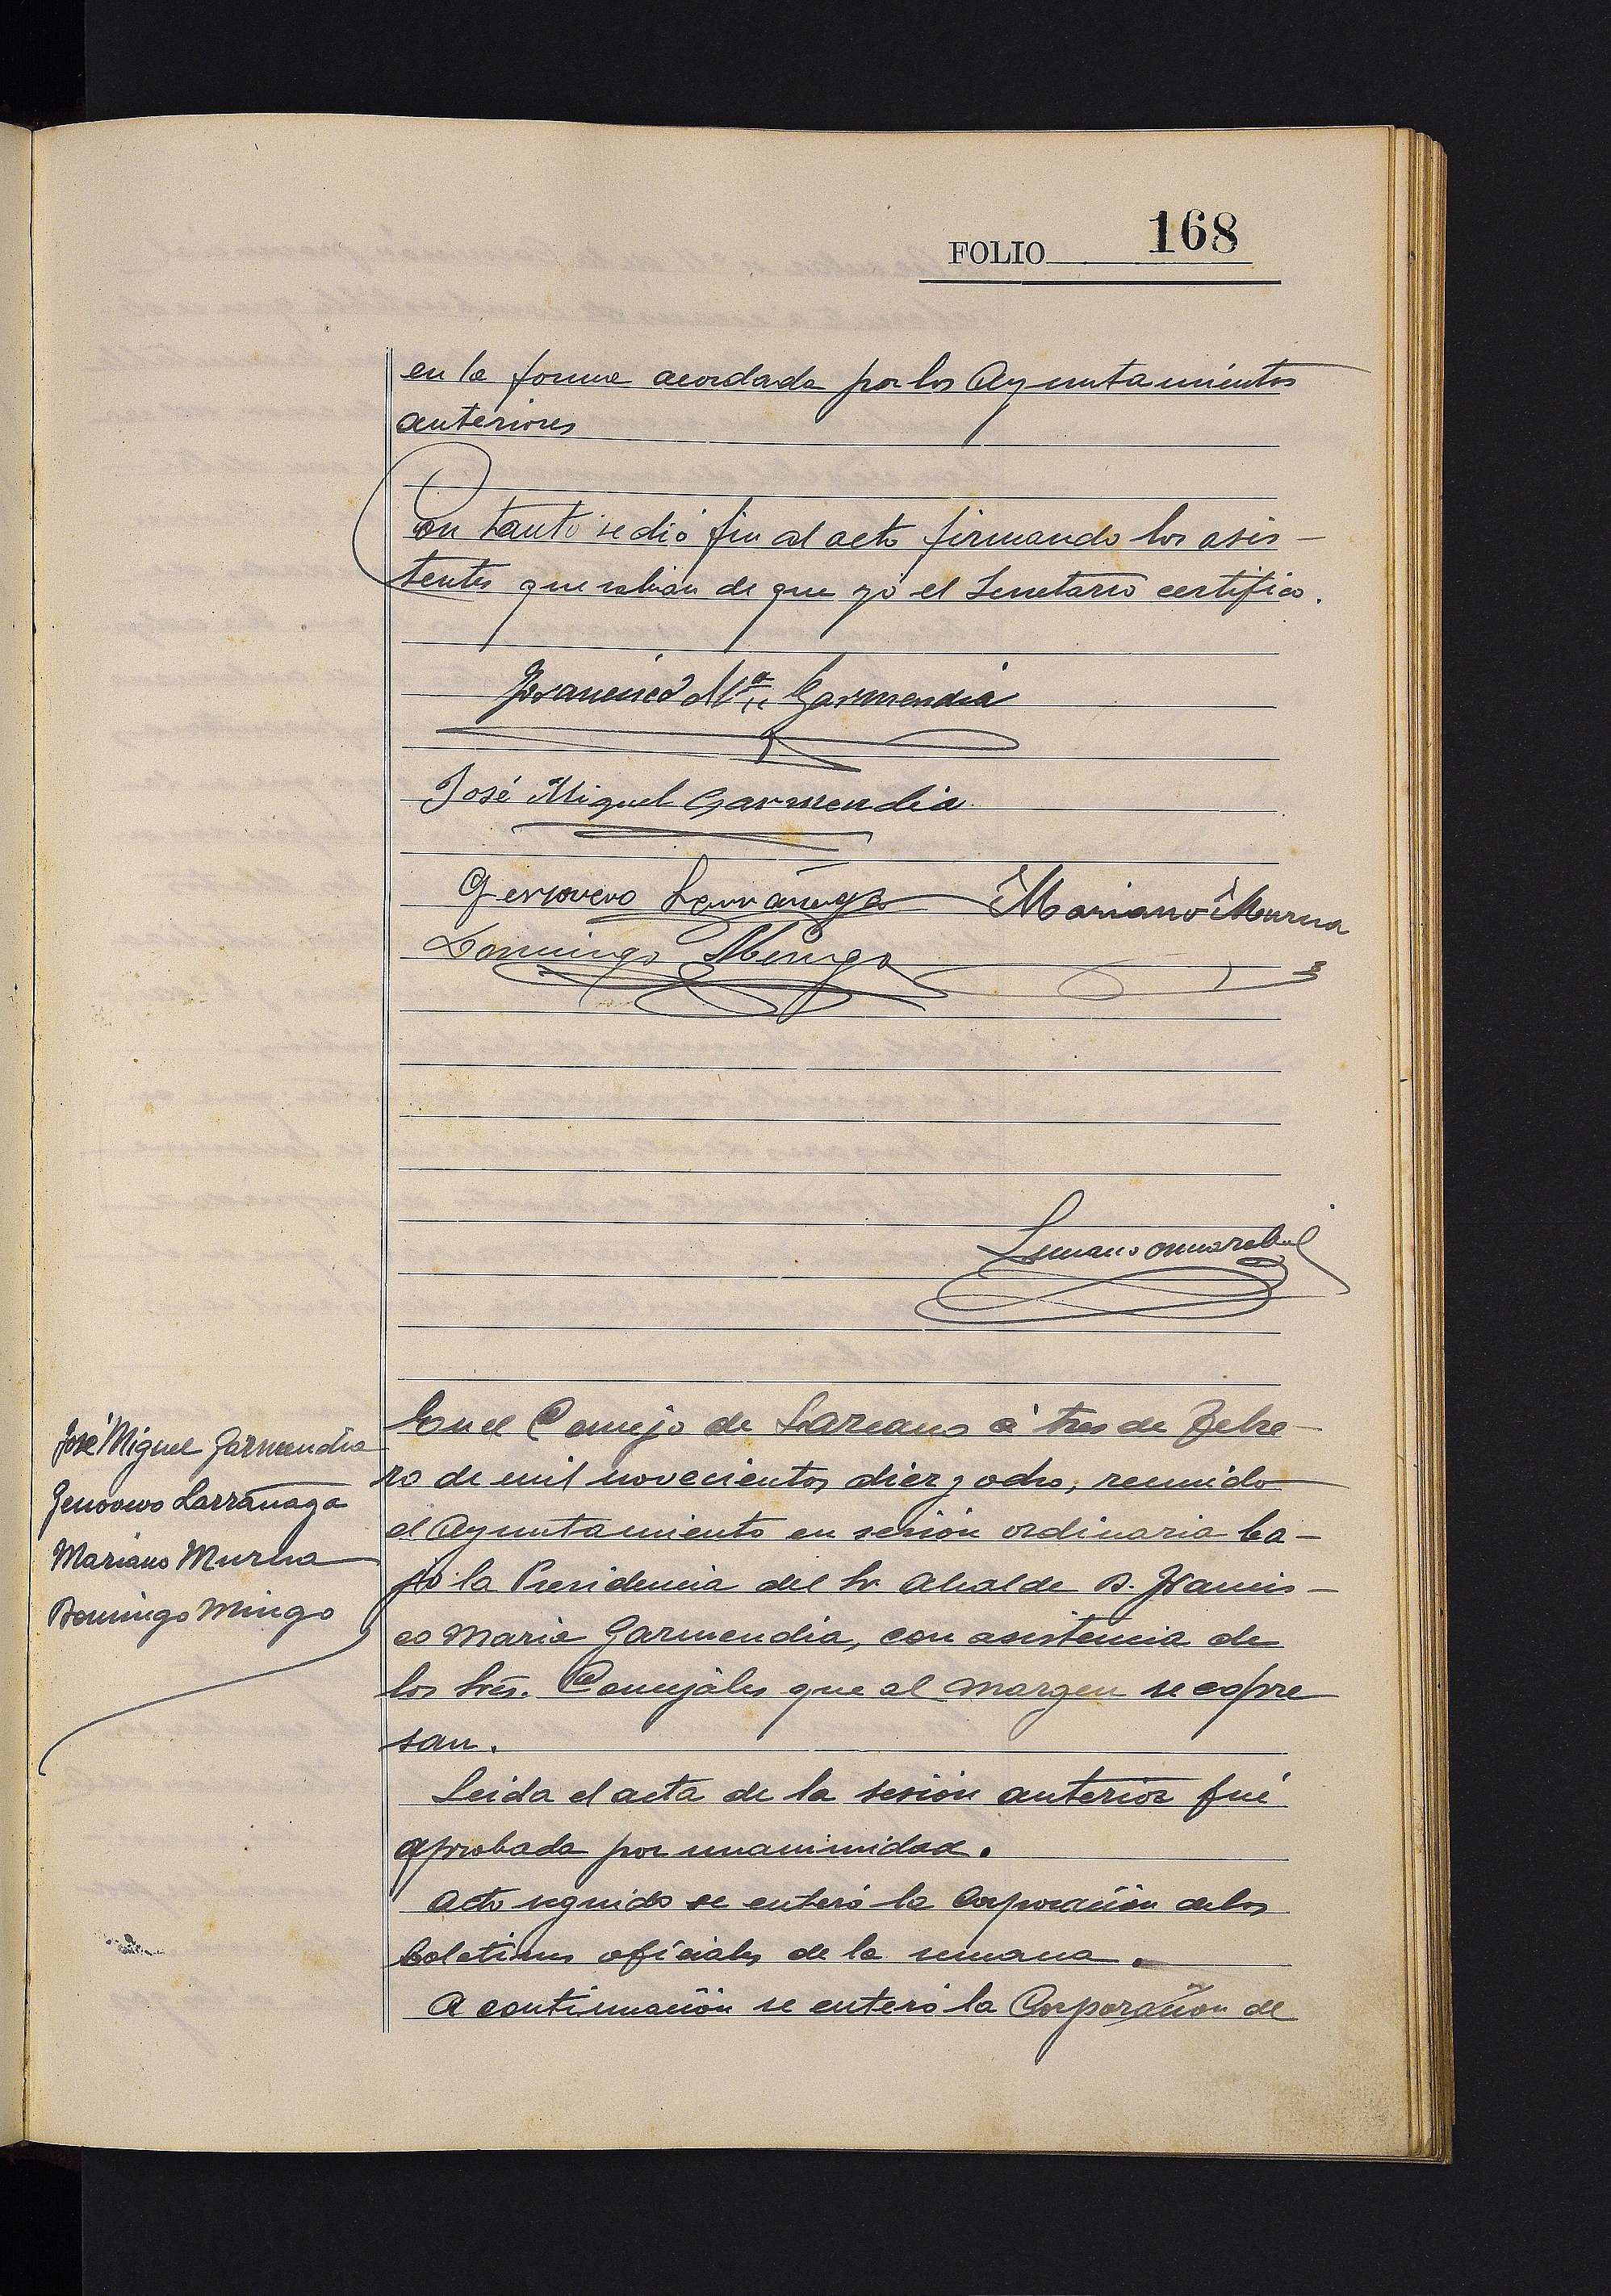 FOLIO 168
en la forma acordada por los Ayuntamientos
anteriores
Con tanto se dió fin al acto firmando los asis-
tentes que sabian de que yó el Secretario certifico.
Francisco Mª Garmendia
José Miguel Garmendia
Genovevo Larrañaga Mariano Murua
Domingo Mingo
José Miguel Garmendia
Genovevo Larrañaga
Mariano Murua
Domingo Mingo
En el Concejo de Lazcano á tres de Febre-
ro de mil novecientos diez y ocho, reunido
el Ayuntamiento en sesión ordinaria ba-
jo la Presidencia del Sr. Alcalde D. Francis-
co Maria Garmendia, con asistencia de
los Srés. Concejáles que al margen se expre
san.
Leida el acta de la sesión anterior fué
aprobada por unanimidad.
Acto seguido se enteró la Corporación de los
boletines oficiales de la semana.
A continuación se enteró la Corporación de